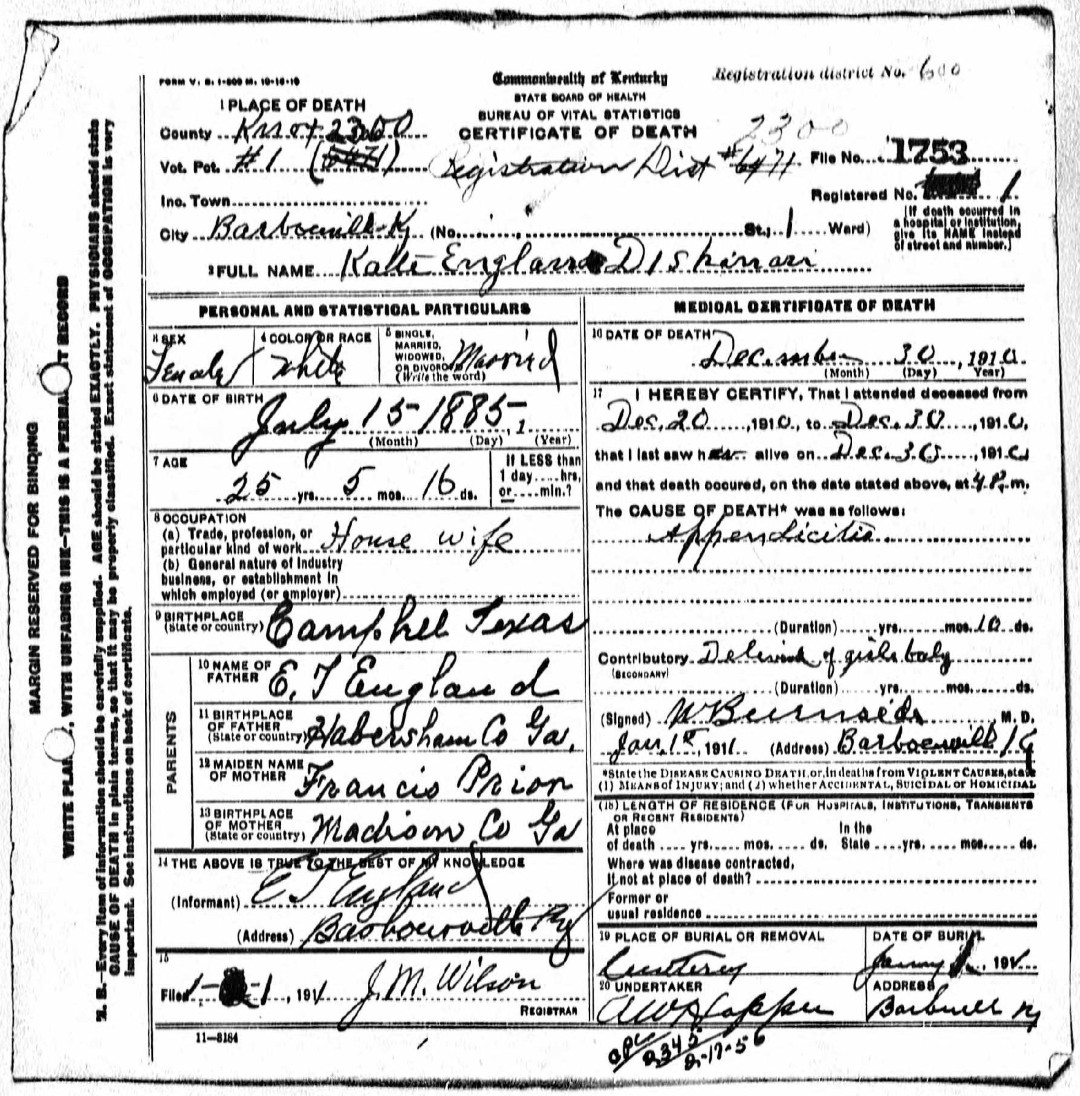 FORM V. S. 1-500 M. 10-18-10
Commonwealth of Kentucky
Registration district No. 600
STATE BOARD OF HEALTH
BUREAU OF VITAL STATISTICS
CERTIFICATE OF DEATH
2300
1 PLACE OF DEATH
County Knox 2300
Vot. Pct. #1 (6471)
Registration Dist #6471
File No. 1753
Registered No. 1
Inc. Town
City Barbourvill Ky (No. St., 1 Ward)
[If death occurred in a hospital or institution, give its NAME instead of street and number.]
2 FULL NAME Katte England Dishman
PERSONAL AND STATISTICAL PARTICULARS
3 SEX Female
4 COLOR OR RACE White
5 SINGLE, MARRIED, WIDOWED, OR DIVORCED (Write the word) Married
6 DATE OF BIRTH July 15-1885, 1
(Month) (Day) (Year)
7 AGE 25 yrs. 5 mos. 16 ds.
If LESS than 1 day....hrs, or....min.?
8 OCCUPATION
(a) Trade, profession, or particular kind of work House wife
(b) General nature of industry business, or establishment in which employed (or employer)
9 BIRTHPLACE (State or country) Campbell Texas
PARENTS
10 NAME OF FATHER E. T England
11 BIRTHPLACE OF FATHER (State or country) Habersham Co Ga.
12 MAIDEN NAME OF MOTHER Francis Prior
13 BIRTHPLACE OF MOTHER (State or country) Madison Co Ga
14 THE ABOVE IS TRUE TO THE BEST OF MY KNOWLEDGE
(Informant) E T England
(Address) Barbourville Ky
15
Filed 1- -1, 191 J. M. Wilson
REGISTRAR
11-8184
MEDICAL CERTIFICATE OF DEATH
16 DATE OF DEATH
December 30, 1910
(Month) (Day) (Year)
17 I HEREBY CERTIFY, That I attended deceased from
Dec. 20, 1910, to Dec. 30, 1910,
that I last saw her alive on Dec. 30, 1910
and that death occured, on the date stated above, at 4 P. m.
The CAUSE OF DEATH* was as follows:
Appendicitis
(Duration) yrs. mos. 10 ds.
Contributory of girls baby
(SECONDARY)
(Duration) yrs. mos. ds.
(Signed) W Burnside M. D.
Jan. 1st, 1911 (Address) Barbourvill Ky
*State the DISEASE CAUSING DEATH, or, in deaths from VIOLENT CAUSES, state
(1) MEANS OF INJURY; and (2) whether ACCIDENTAL, SUICIDAL OR HOMICIDAL
(18) LENGTH OF RESIDENCE (FOR HOSPITALS, INSTITUTIONS, TRANSIENTS OR RECENT RESIDENTS)
At place of death .... yrs. mos. ds. In the State .... yrs. mos. ds.
Where was disease contracted,
If not at place of death?
Former or
usual residence
19 PLACE OF BURIAL OR REMOVAL
DATE OF BURIAL
20 UNDERTAKER
ADDRESS
Barbvill Ky
2345
2-17-56
MARGIN RESERVED FOR BINDING
WRITE PLAINLY, WITH UNFADING INK—THIS IS A PERMANENT RECORD
N. B.—Every item of information should be carefully supplied. AGE should be stated EXACTLY. PHYSICIANS should state
CAUSE OF DEATH in plain terms, so that it may be properly classified. Exact statement of OCCUPATION is very
important. See instructions on back of certificate.